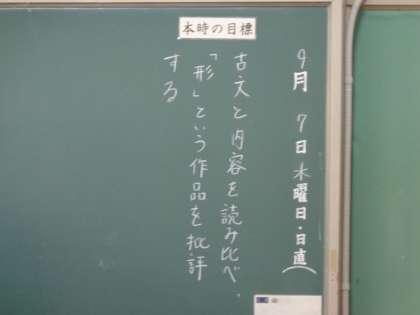 本時の目標
9月7日木曜日・日直(
古文と内容を読み比べ、
「形」という作品を批評
する